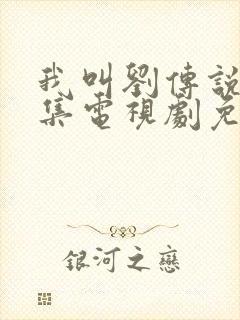 我叫劉傳說
集電視劇免
銀河之戀